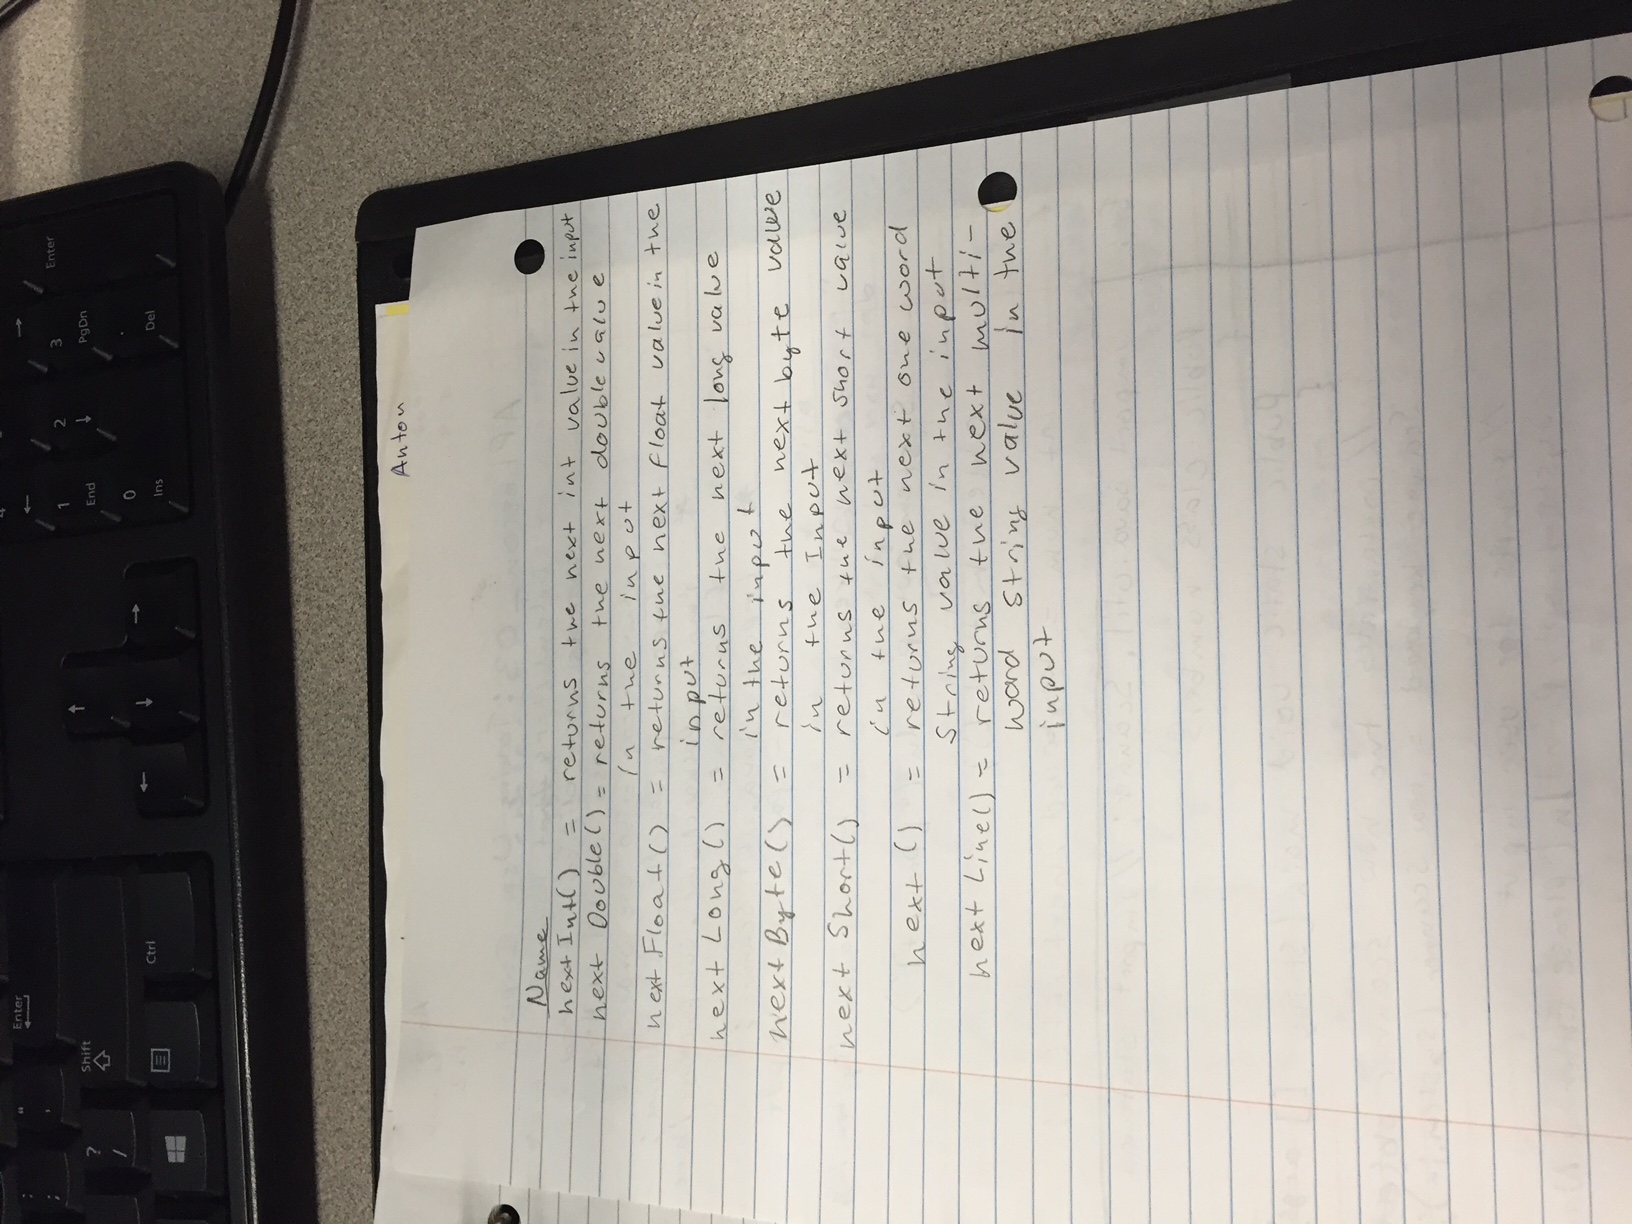 Enter
Shift
?
/
Ctrl
1
End
2
3
PgDn
Enter
0
Ins
.
Del
Anton
Name
nextInt() = returns the next int value in the input
next Double() = returns the next double value
in the input
next Float() = returns the next float value in the
input
next Long() = returns the next long value
in the input
nextByte() = returns the next byte value
in the Input
next Short() = returns the next short value
in the input
next () = returns the next one word
String value in the input
next Line() = returns the next multi-
word String value in the
input